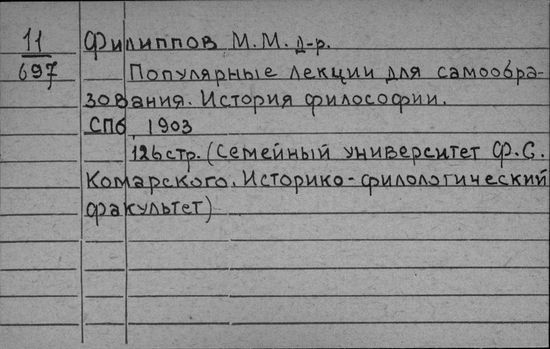 11
697
Филиппов М.М. д-р.
Популярные лекции для самообра-
зования. История философии.
СПб, 1903
126стр. (Семейный университет Ф.С.
Комарского. Историко-филологический
факультет)